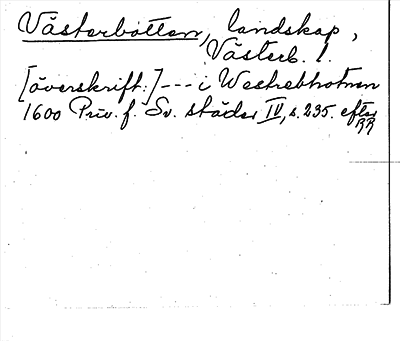 Västerbotten, landskap,
Västerb. l.
[överskrift:] --- i Westrebhotnen
1600 Priv. f. Sv. städer IV, s. 235. efter
RR